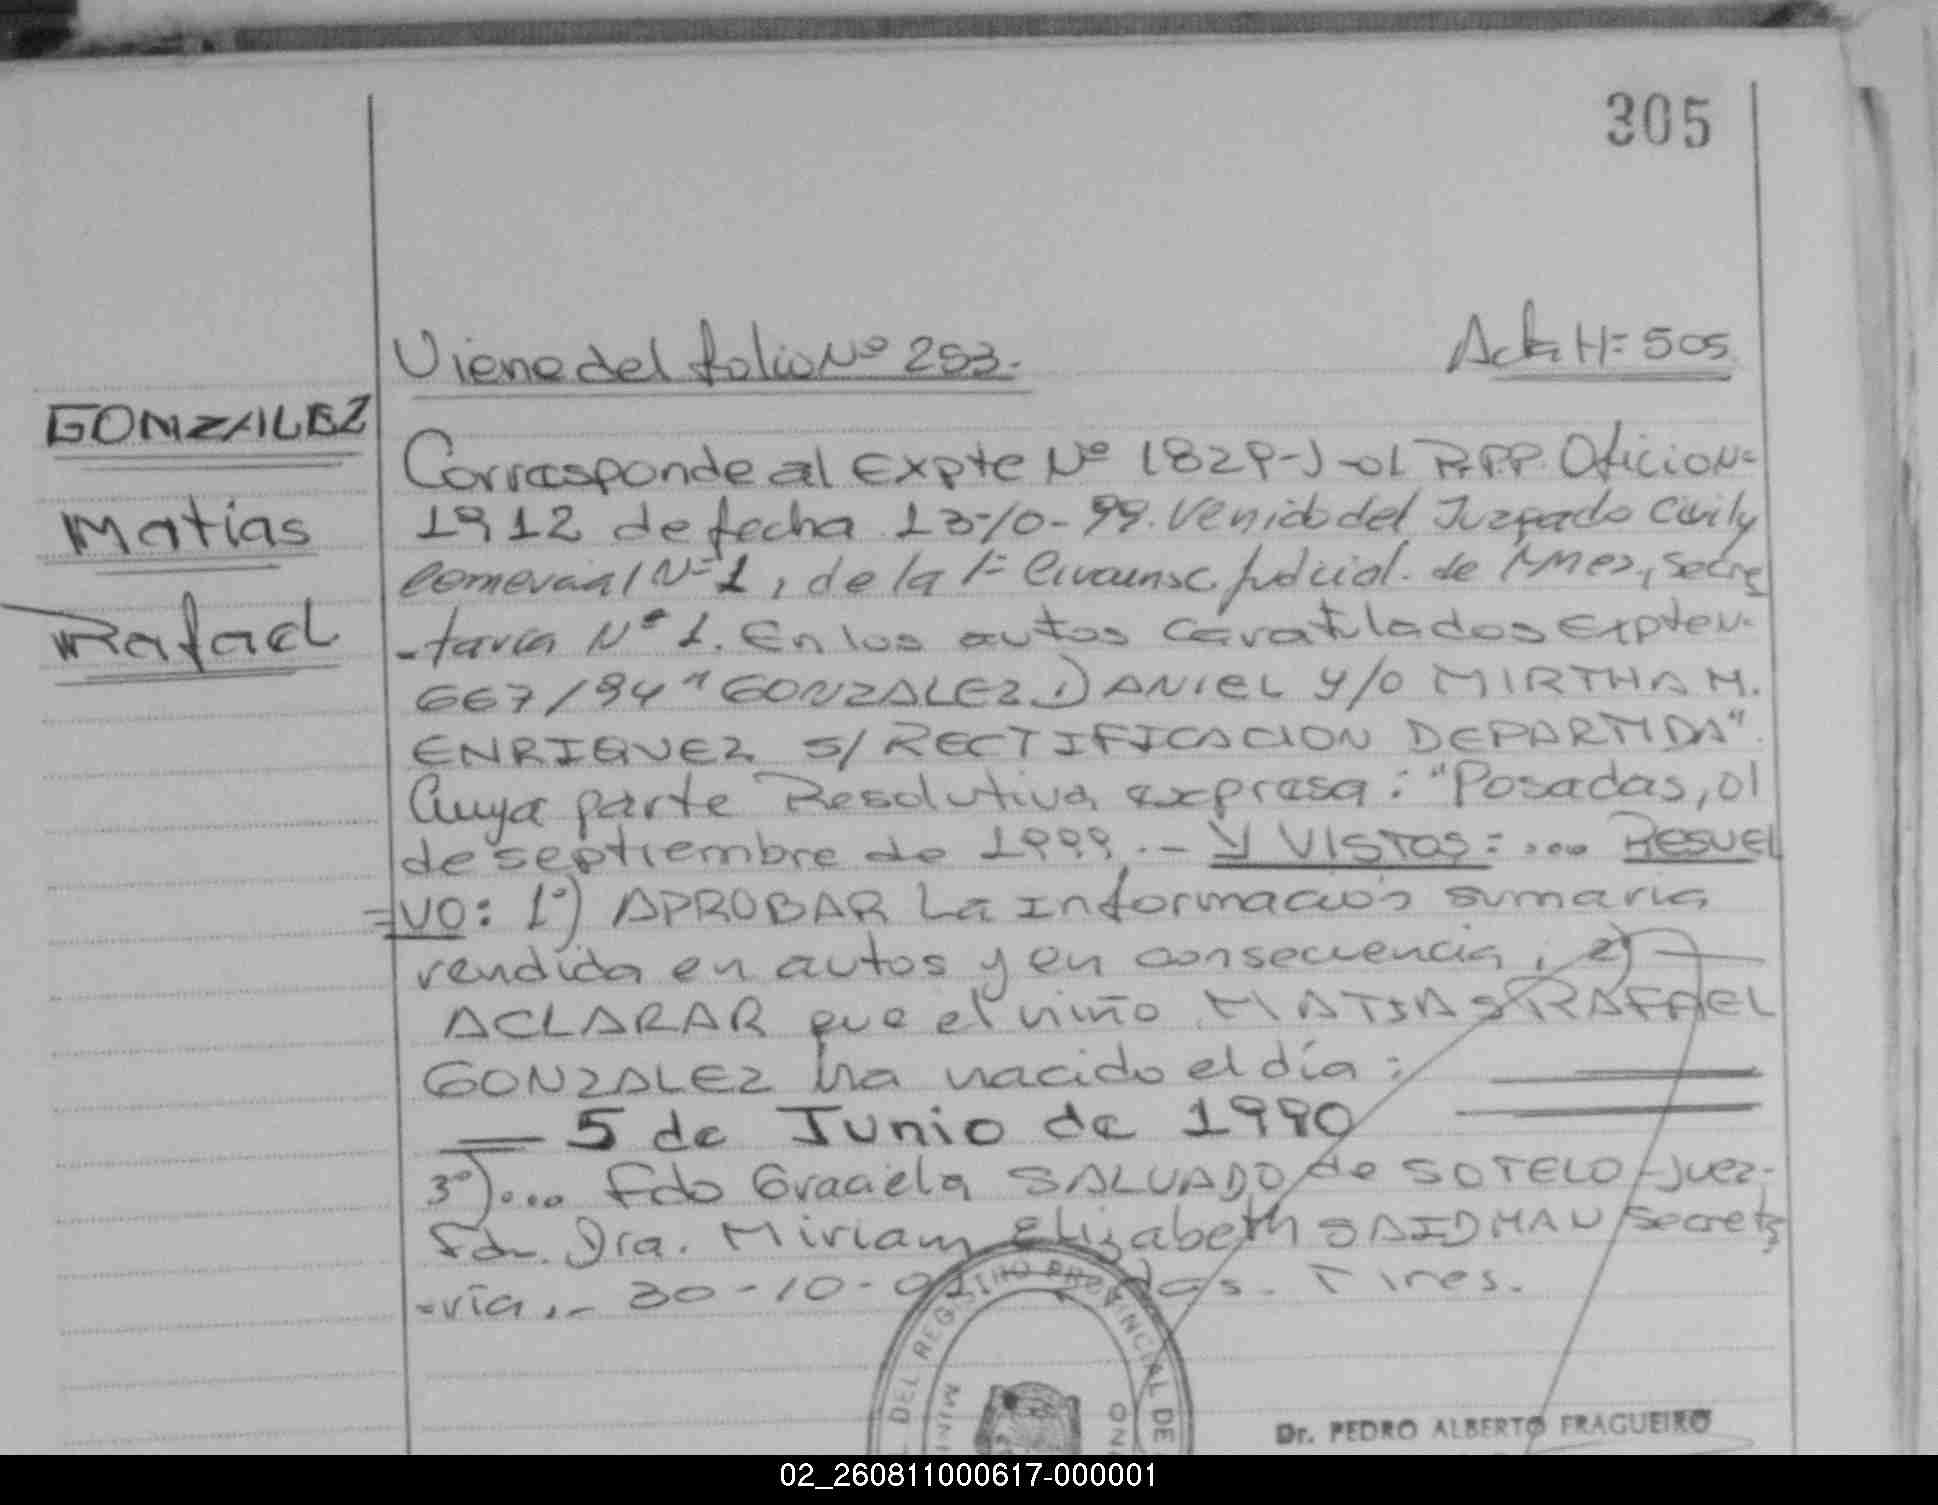 305
Viene del folio Nº 253.
Acta Nº 505
GONZALEZ
Matías
Rafael
Corresponde al Expte Nº 1829-J-01 R.P.P. Oficio Nº
1912 de fecha 13-10-99. Venido del Juzgado Civil y
Comercial Nº 1, de la 1ª Circunsc Judicial. de Mnes, Secre
-taria Nº 1. En los autos Caratulados Expte Nº
667/94 "GONZALEZ DANIEL Y/O MIRTHA M.
ENRIQUEZ S/ RECTIFICACION DE PARTIDA".
Cuya parte Resolutiva expresa: "Posadas, 01
de septiembre de 1999.- Y VISTOS: .... RESUEL
=VO: 1º) APROBAR La Información sumaria
rendida en autos y en consecuencia, 2)
ACLARAR que el niño MATIAS RAFAEL
GONZALEZ ha nacido el día:
5 de Junio de 1990
3º).... Fdo Graciela SALVADO de SOTELO -Juez-
Fdo. Dra. Miriam Elizabeth SAIDMAN Secreta
=ria.- 30-10-01 Pdas. Mnes.
DEL REGISTRO PROVINCIAL DE
MINI
Dr. PEDRO ALBERTO FRAGUEIRO
02_260811000617-000001